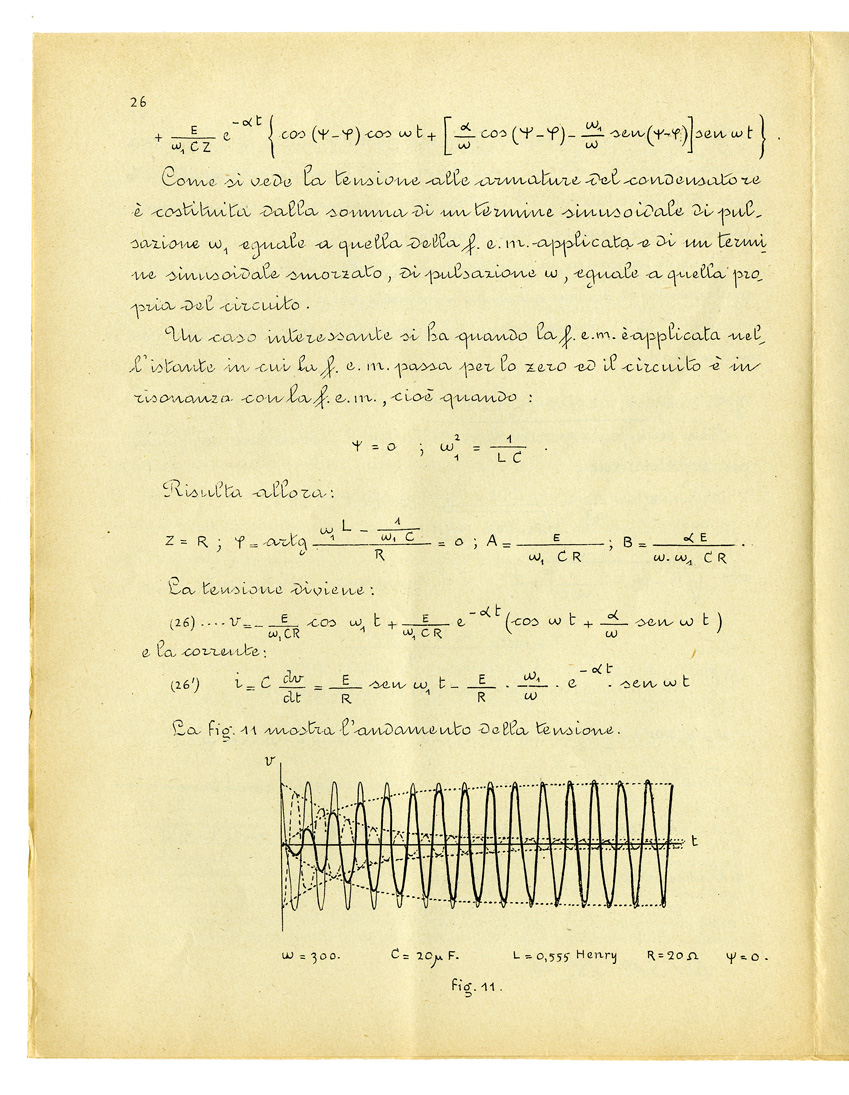 26
+ E/(ω₁ C Z) e^(-αt) { cos (Ψ-φ) cos ωt + [ α/ω cos (Ψ-φ) - ω₁/ω sen (Ψ-φ) ] sen ωt } .
Come si vede la tensione alle armature del condensatore
è costituita dalla somma di un termine sinusoidale di pul_
sazione ω₁ eguale a quella della f. e. m. applicata e di un termi_
ne sinusoidale smorzato, di pulsazione ω, eguale a quella pro_
pria del circuito.
Un caso interessante si ha quando la f. e. m. è applicata nel_
l'istante in cui la f. e. m. passa per lo zero ed il circuito è in
risonanza con la f. e. m., cioè quando :
Ψ = 0 ; ω₁² = 1/(L C) .
Risulta allora:
Z = R ; φ = artg (ω₁ L - 1/(ω₁ C))/R = 0 ; A = E/(ω₁ C R) ; B = α E/(ω.ω₁ C R) .
La tensione diviene:
(26) .... v = - E/(ω₁CR) cos ω₁ t + E/(ω₁ C R) e^(-αt) (cos ω t + α/ω sen ω t )
e la corrente:
(26') i = C dv/dt = E/R sen ω₁ t - E/R . ω₁/ω . e^(-αt) . sen ω t
La fig. 11 mostra l'andamento della tensione.
v
t
ω = 300. C = 20μ F. L = 0,555 Henry R = 20 Ω Ψ = 0.
Fig. 11.